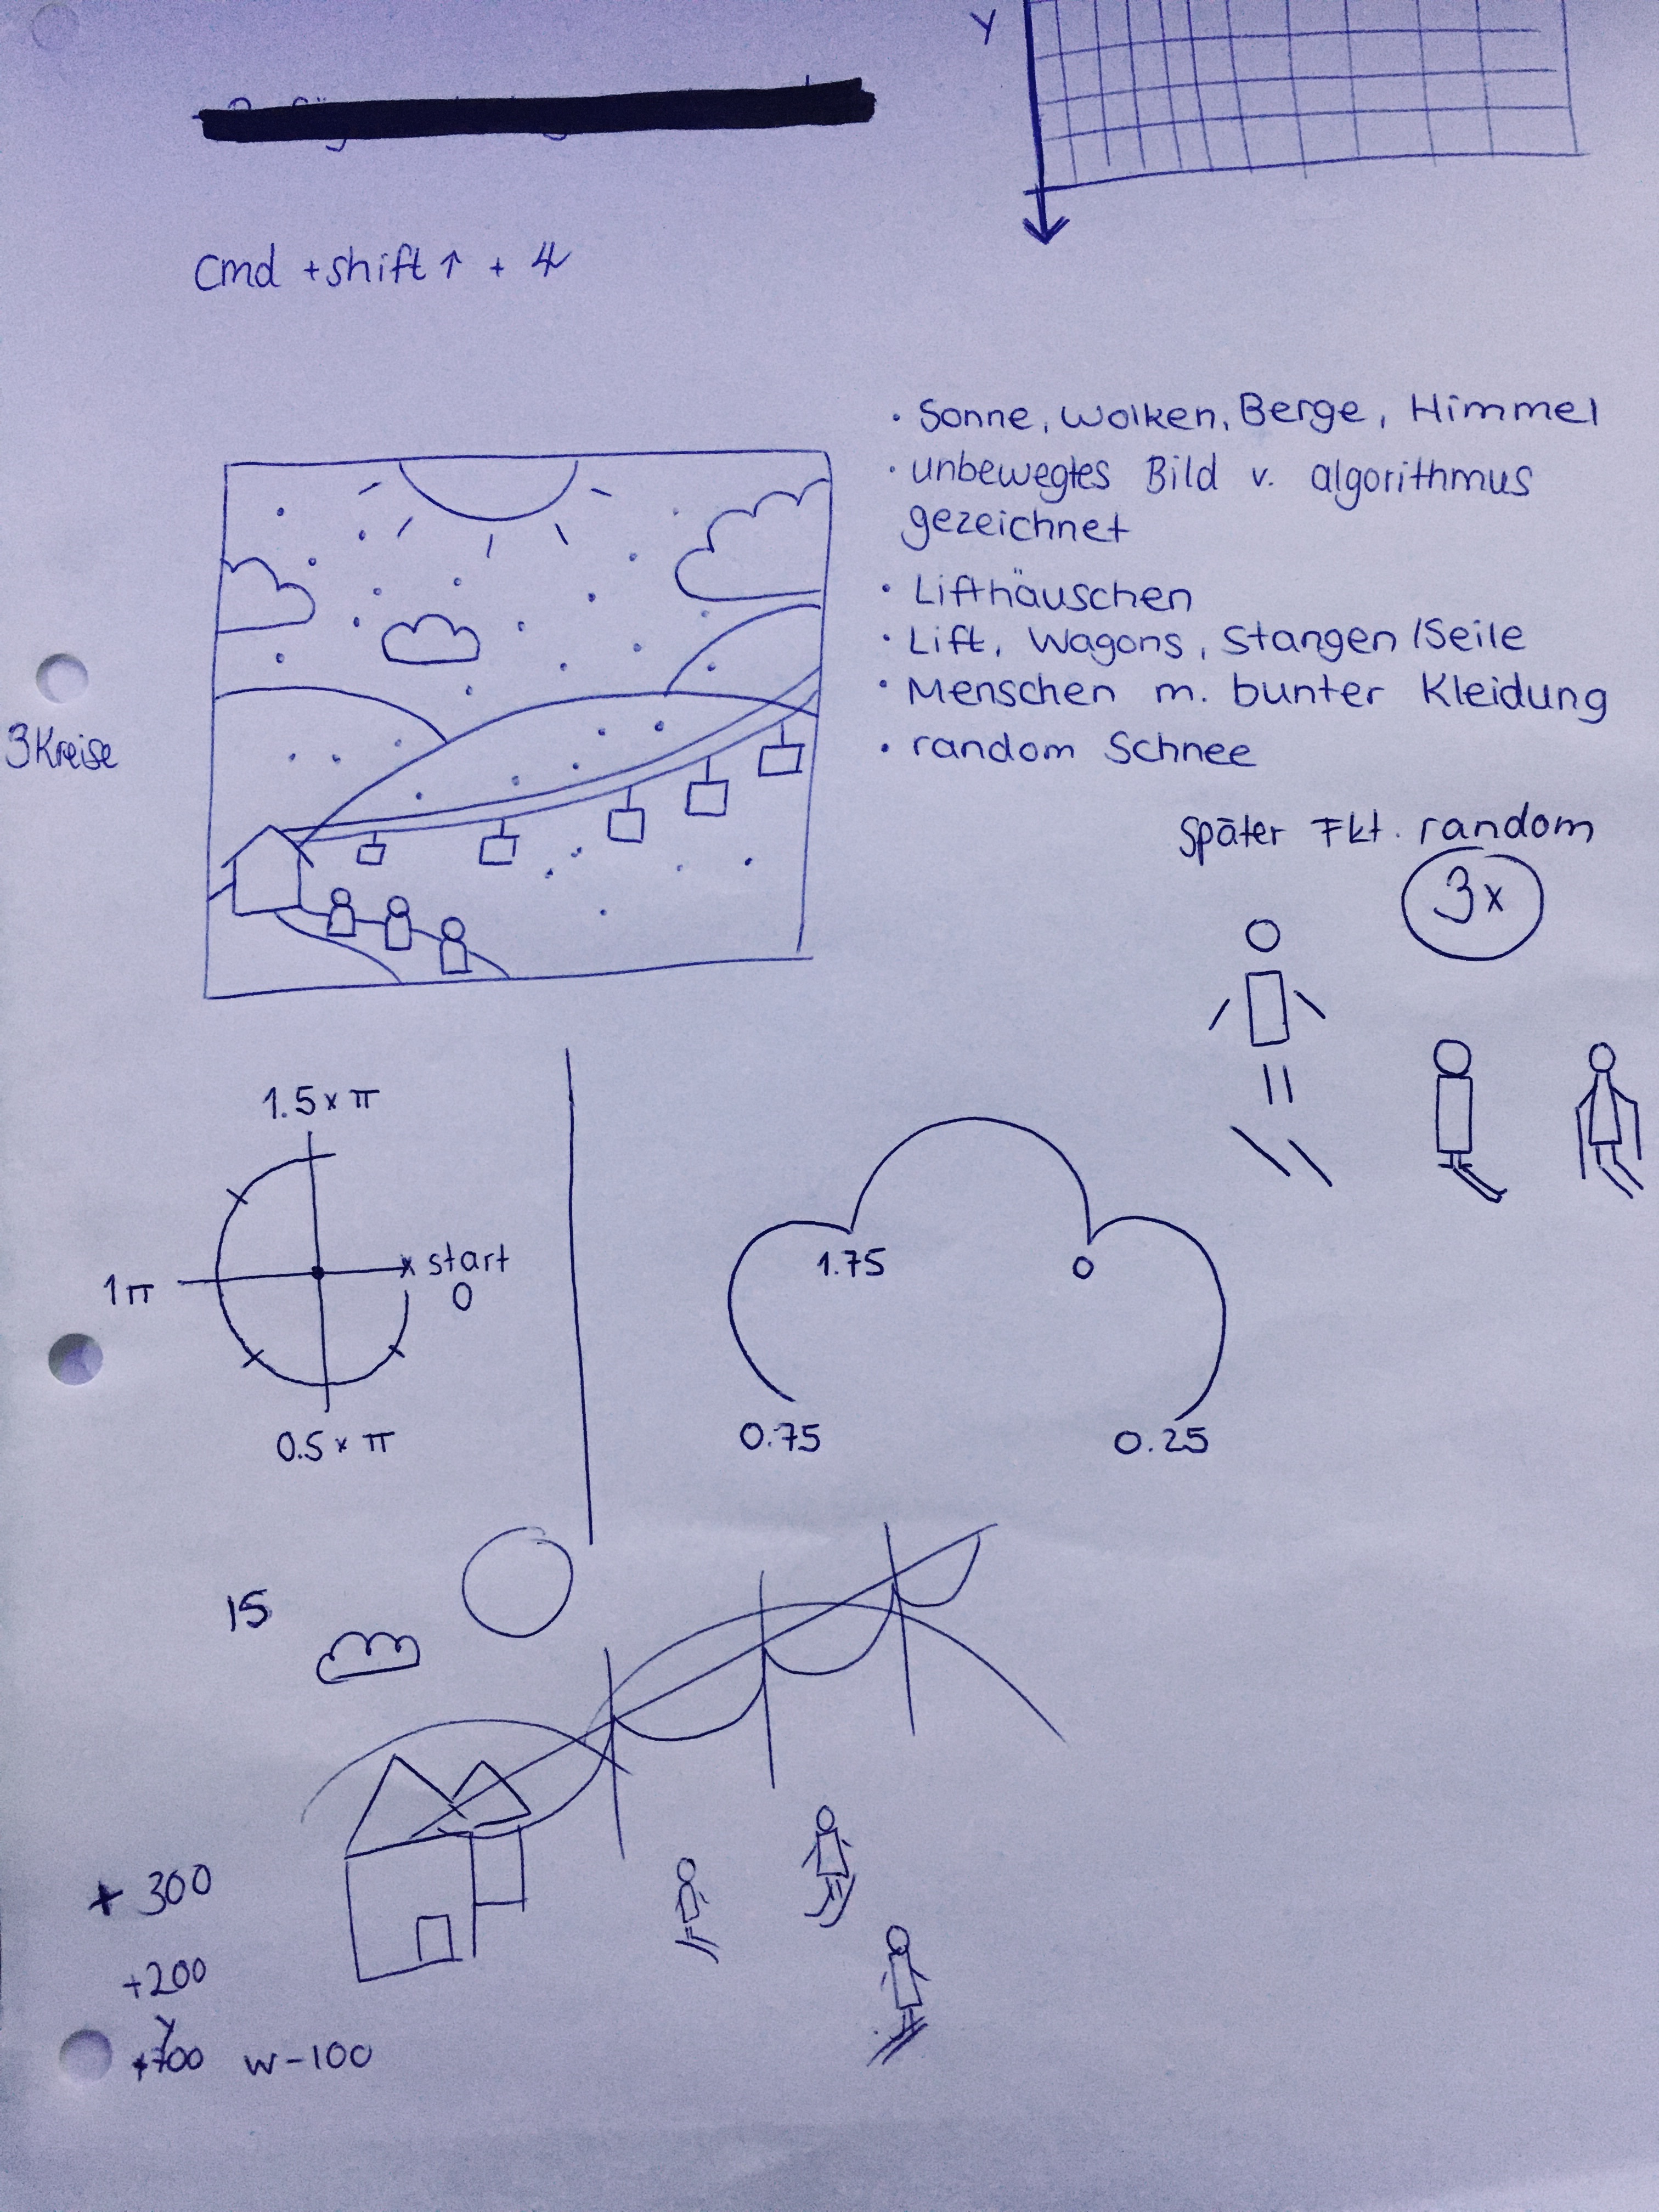 Y
cmd + shift ↑ + 4
• Sonne, Wolken, Berge, Himmel
• unbewegtes Bild v. algorithmus
gezeichnet
• Lifthäuschen
• Lift, Wagons, Stangen /Seile
• Menschen m. bunter Kleidung
• random Schnee
3 Kreise
später Fkt. random
3x
1.5 x π
x start
0
1 π
0.5 x π
1.75
0
0.75
0.25
15
+ 300
+200
w-100